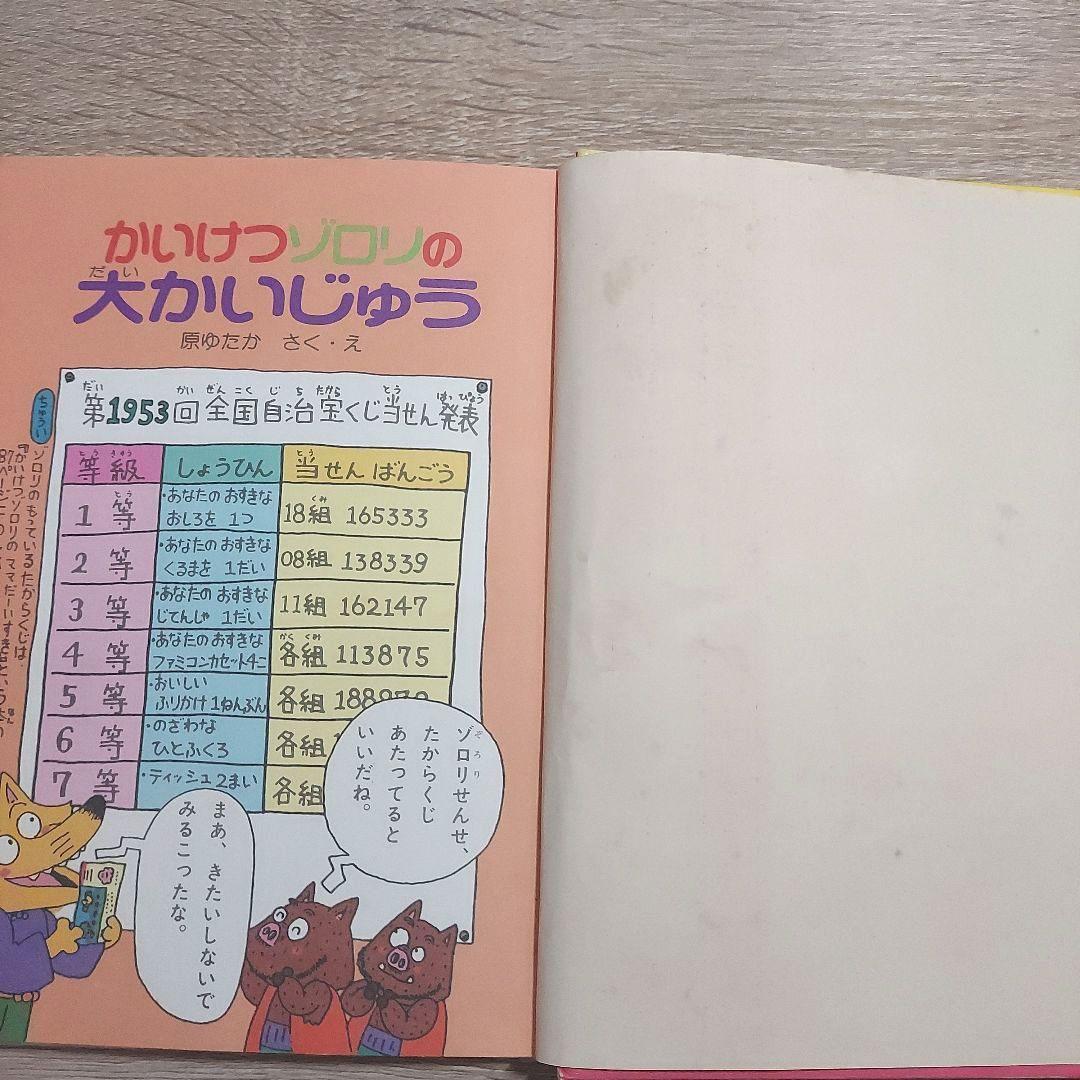 かいけつゾロリの
だい
大かいじゅう
原ゆたか さく・え
だい かい ぜん こく じ ち たから とう はっ ぴょう
第1953回 全国自治宝くじ当せん発表
とう きゅう とう
等級 しょうひん 当せんばんごう
とう くみ
1等 ・あなたの おすきな おしろを 1つ 18組 165333
2等 ・あなたの おすきな くるまを 1だい 08組 138339
3等 ・あなたの おすきな じてんしゃ 1だい 11組 162147
かく くみ
4等 ・あなたの おすきな ファミコンカセット4こ 各組 113875
5等 ・おいしい ふりかけ1ねんぶん 各組 1889
6等 ・のざわな ひとふくろ 各組
7等 ・ティッシュ2まい 各組
ちゅうい
ゾロリの もっている たからくじは、
『かいけつゾロリの ママだーいすき
ぞろり
ゾロリせんせ、
たからくじ
あたってると
いいだね。
まあ、きたいしないで
みるこったな。